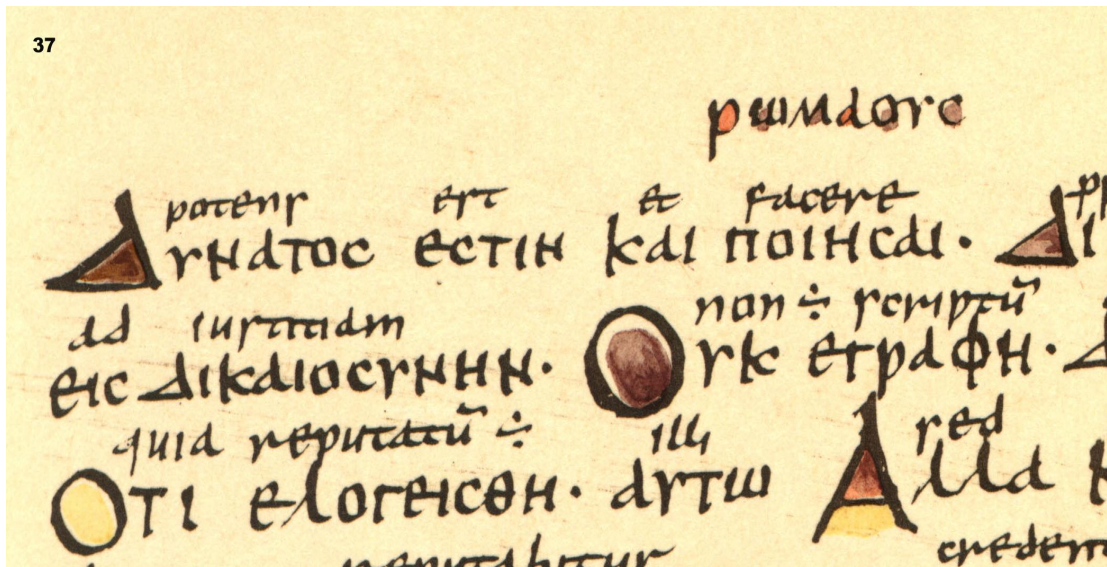 37
ρωμαους
potens est et facere
Δυνατος εστιν και ποιησαι· Δι
ad iustitiam non ÷ scriptū
εις Δικαιοσυνην· Ουκ εγραφη·
quia reputatū ÷ illi sed
Οτι ελογεισθη· αυτω Αλλα
reputabitur